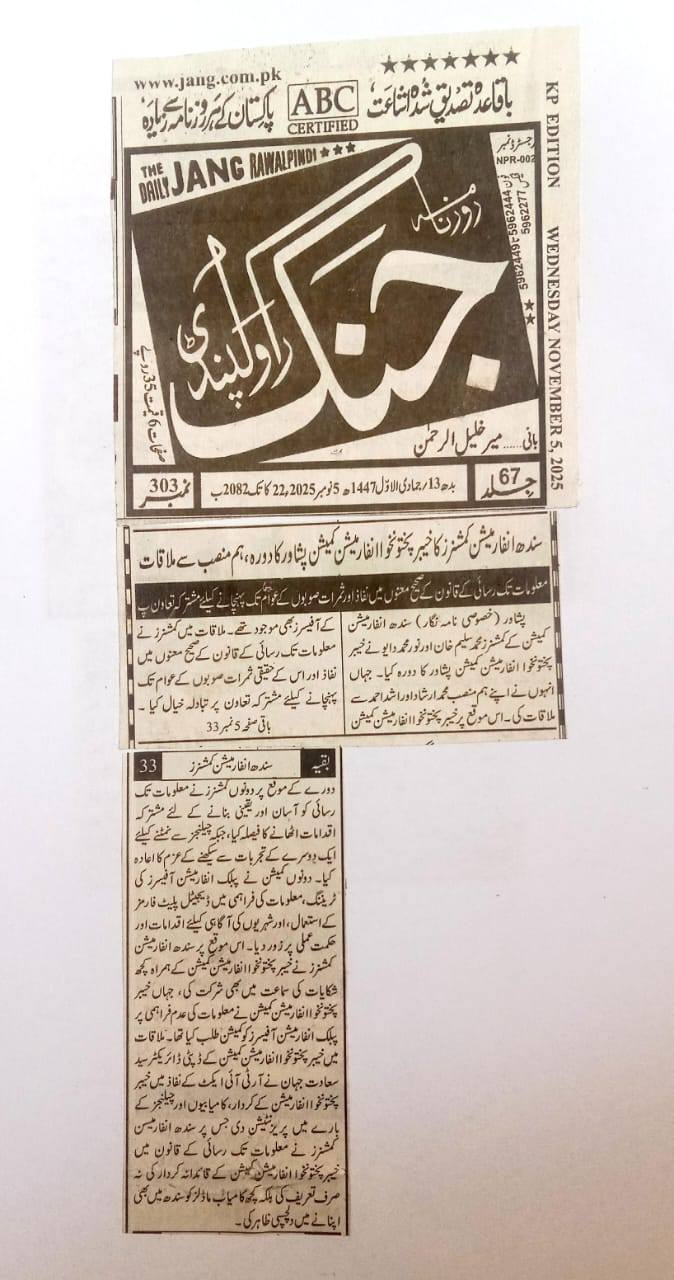 ★★★★★★★
www.jang.com.pk
باقاعدہ تصدیق شدہ اشاعت،
ABC
CERTIFIED
پاکستان کے ہر روزنامہ سے زیادہ،
KP EDITION WEDNESDAY NOVEMBER 5, 2025
رجسٹرڈ نمبر
NPR-002
فون 5962444
فیکس 5962277
THE DAILY JANG RAWALPINDI ★★★
روزنامہ
جنگ
راولپنڈی
صفحات 6 قیمت 35 روپے
بانی ...... میر خلیل الرحمٰن
جلد 67
بدھ 13؍ جمادی الاوّل 1447ھ 5 نومبر 2025ء 22 کاتک 2082 ب
نمبر 303
سندھ انفارمیشن کمشنرز کا خیبر پختونخوا انفارمیشن کمیشن پشاور کا دورہ، ہم منصب سے ملاقات
معلومات تک رسائی کے قانون کے صحیح معنوں میں نفاذ اور ثمرات صوبوں کے عوام تک پہنچانے کیلئے مشترکہ تعاون پ
پشاور (خصوصی نامہ نگار) سندھ انفارمیشن
کمیشن کے کمشنرز محمد سلیم خان اور نور محمد دایو نے خیبر
پختونخوا انفارمیشن کمیشن پشاور کا دورہ کیا۔ جہاں
انہوں نے اپنے ہم منصب محمد ارشاد اور اشد احمد سے
ملاقات کی۔ اس موقع پر خیبر پختونخوا انفارمیشن کمیشن
کے آفیسرز بھی موجود تھے۔ ملاقات میں کمشنرز نے
معلومات تک رسائی کے قانون کے صحیح معنوں میں
نفاذ اور اس کے حقیقی ثمرات صوبوں کے عوام تک
پہنچانے کیلئے مشترکہ تعاون پر تبادلہ خیال کیا۔
باقی صفحہ 5 نمبر 33
بقیہ سندھ انفارمیشن کمشنرز 33
دورے کے موقع پر دونوں کمشنرز نے معلومات تک
رسائی کو آسان اور یقینی بنانے کے لئے مشترکہ
اقدامات اٹھانے کا فیصلہ کیا، جبکہ چیلنجز سے نمٹنے کیلئے
ایک دوسرے کے تجربات سے سیکھنے کے عزم کا اعادہ
کیا۔ دونوں کمیشن نے پبلک انفارمیشن آفیسرز کی
ٹریننگ، معلومات کی فراہمی میں ڈیجیٹل پلیٹ فارمز
کے استعمال، اور شہریوں کی آگاہی کیلئے اقدامات اور
حکمت عملی پر زور دیا۔ اس موقع پر سندھ انفارمیشن
کمشنرز نے خیبر پختونخوا انفارمیشن کمیشن کے ہمراہ کچھ
شکایات کی سماعت میں بھی شرکت کی، جہاں خیبر
پختونخوا انفارمیشن کمیشن نے معلومات کی عدم فراہمی پر
پبلک انفارمیشن آفیسرز کو کمیشن طلب کیا تھا۔ ملاقات
میں خیبر پختونخوا انفارمیشن کمیشن کے ڈپٹی ڈائریکٹر سید
سعادت جہان نے آر ٹی آئی ایکٹ کے نفاذ میں خیبر
پختونخوا انفارمیشن کے کردار، کامیابیوں اور چیلنجز کے
بارے میں پریزنٹیشن دی جس پر سندھ انفارمیشن
کمشنرز نے معلومات تک رسائی کے قانون میں
خیبر پختونخوا انفارمیشن کمیشن کے قائدانہ کردار کی نہ
صرف تعریف کی بلکہ کچھ کامیاب ماڈلز کو سندھ میں بھی
اپنانے میں دلچسپی ظاہر کی۔